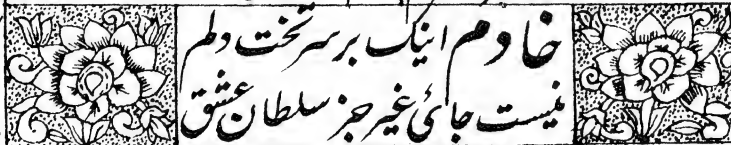 خادم اینک بر سر تخت دلم
نیست جائ غیر جز سلطان عشق